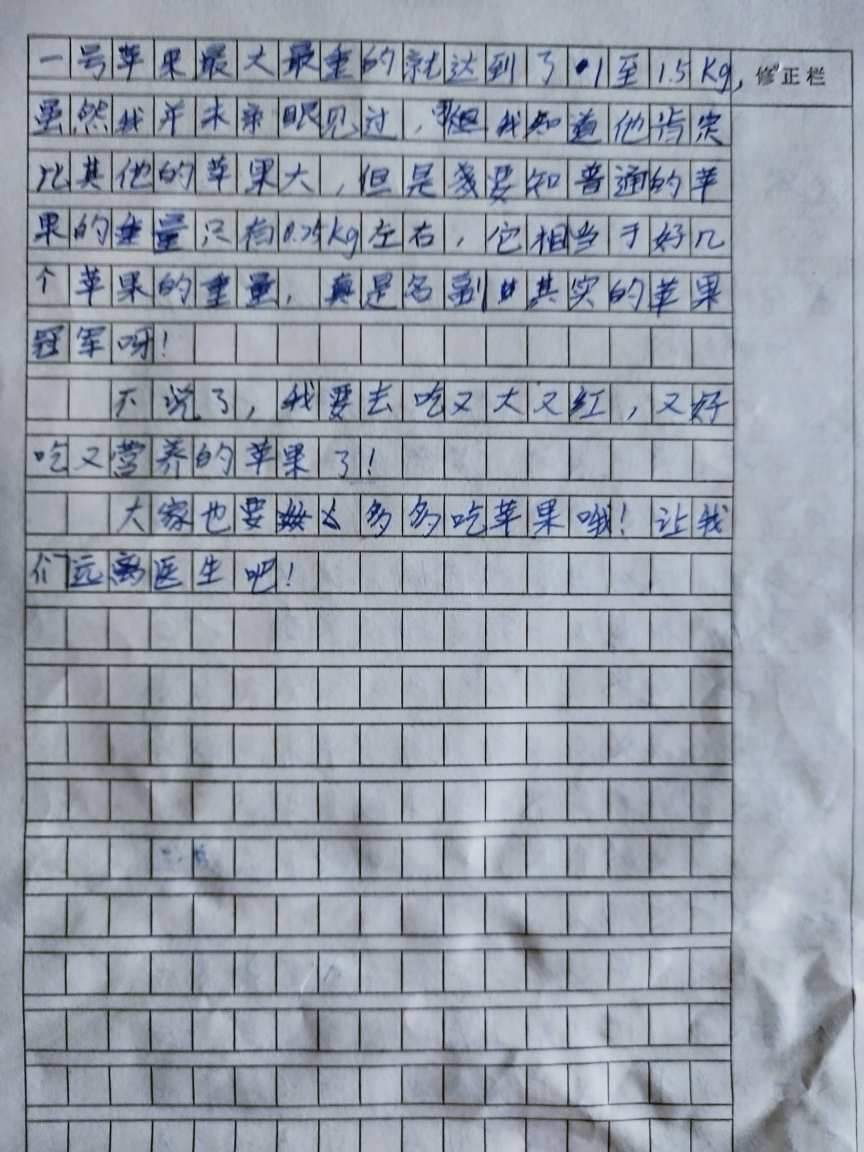 一号苹果最大最重的就达到了1至1.5Kg，
修正栏
虽然我并未亲眼见过，但我知道他肯定
比其他的苹果大，但是要知普通的苹
果的重量只有0.25kg左右，它相当于好几
个苹果的重量，真是名副其实的苹果
冠军呀！
不说了，我要去吃又大又红，又好
吃又营养的苹果了！
大家也要多多吃苹果哦！让我
们远离医生吧！